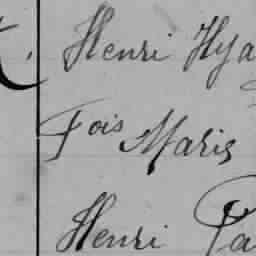 Henri Hya
Fois Maris
Henri Pa